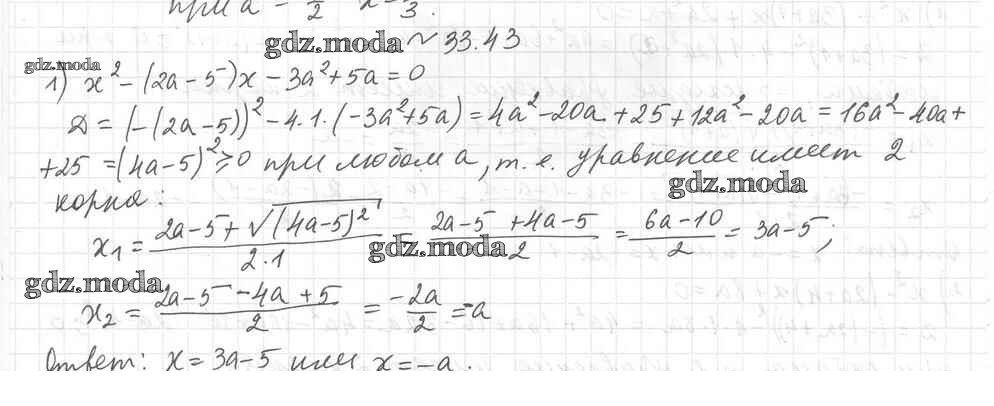 при a = /2 x = /3.
gdz.moda № 33.43
gdz.moda
1) x² - (2a - 5)x - 3a² + 5a = 0
Д = (-(2a-5))² - 4·1·(-3a²+5a) = 4a² - 20a + 25 + 12a² - 20a = 16a² - 40a +
+25 = (4a-5)² ≥ 0 при любом a, т.е. уравнение имеет 2
gdz.moda
корня:
x₁ = (2a-5+√(4a-5)²)/(2·1) = (2a-5+4a-5)/2 = (6a-10)/2 = 3a-5;
gdz.moda
gdz.moda
x₂ = (2a-5-4a+5)/2 = -2a/2 = -a
Ответ: x = 3a-5 или x = -a.